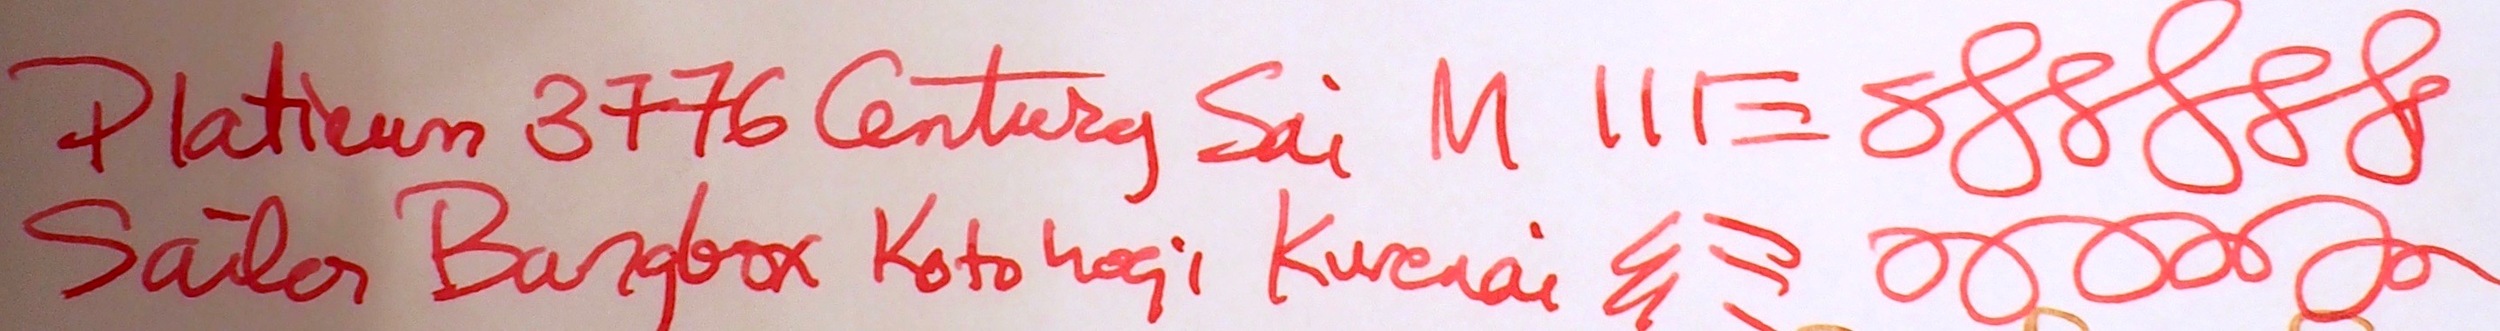 Platinum 3776 Century Sai M
Sailor Bungbox Kotohogi Kurenai